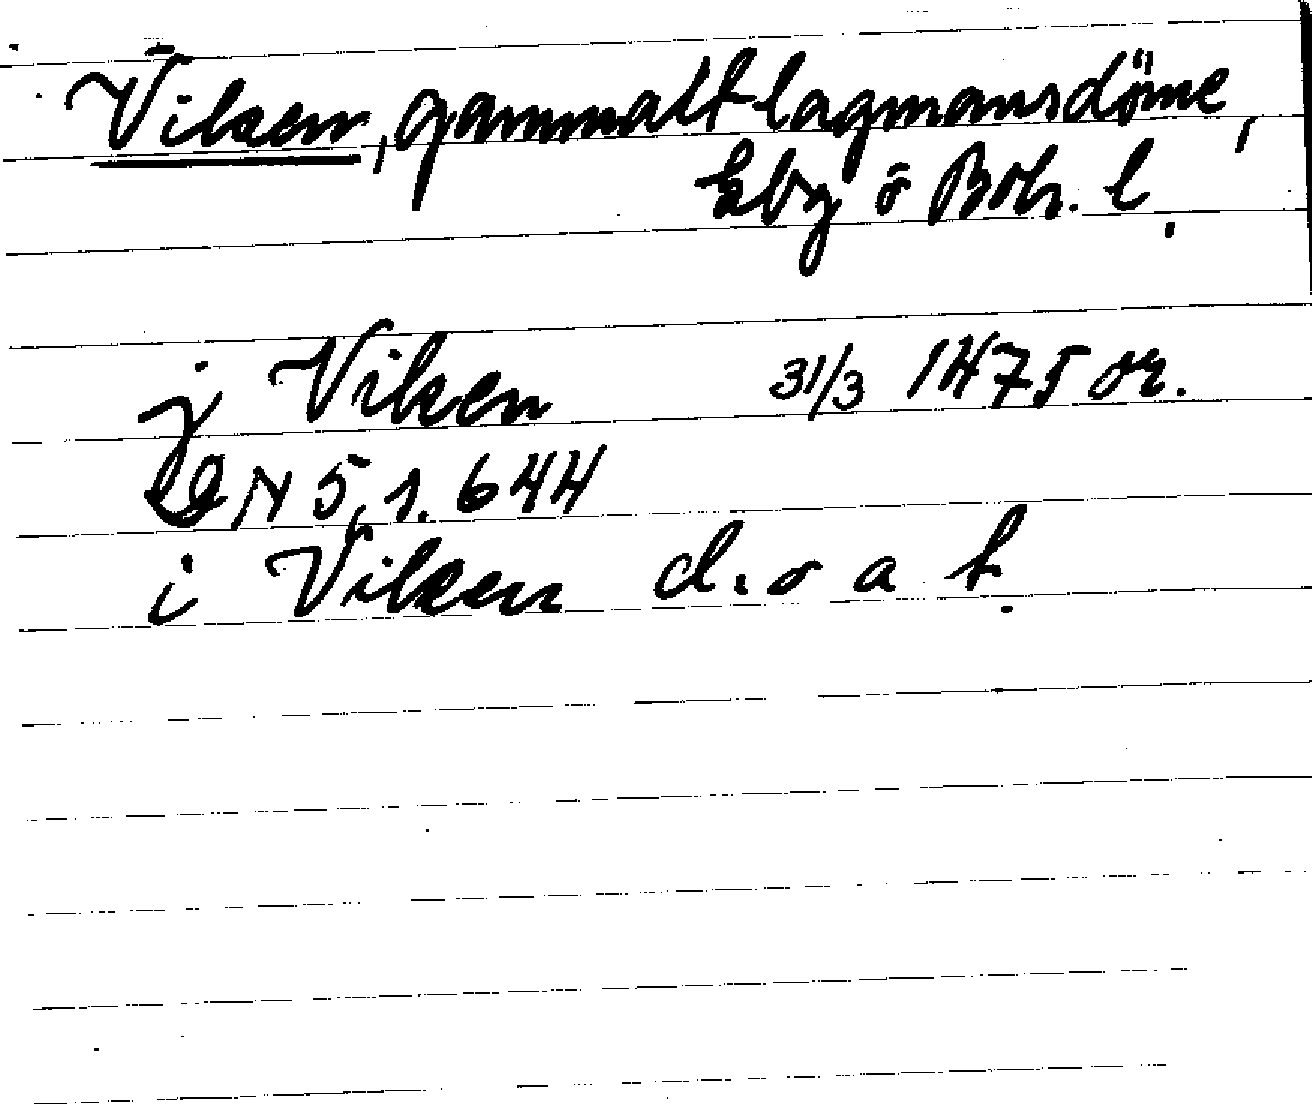 Viken, gammalt lagmansdöme,
Eby ö Boh. l.
j Viken 31/3 1475 or.
DN 5,1. 644
i Viken d. o a k.